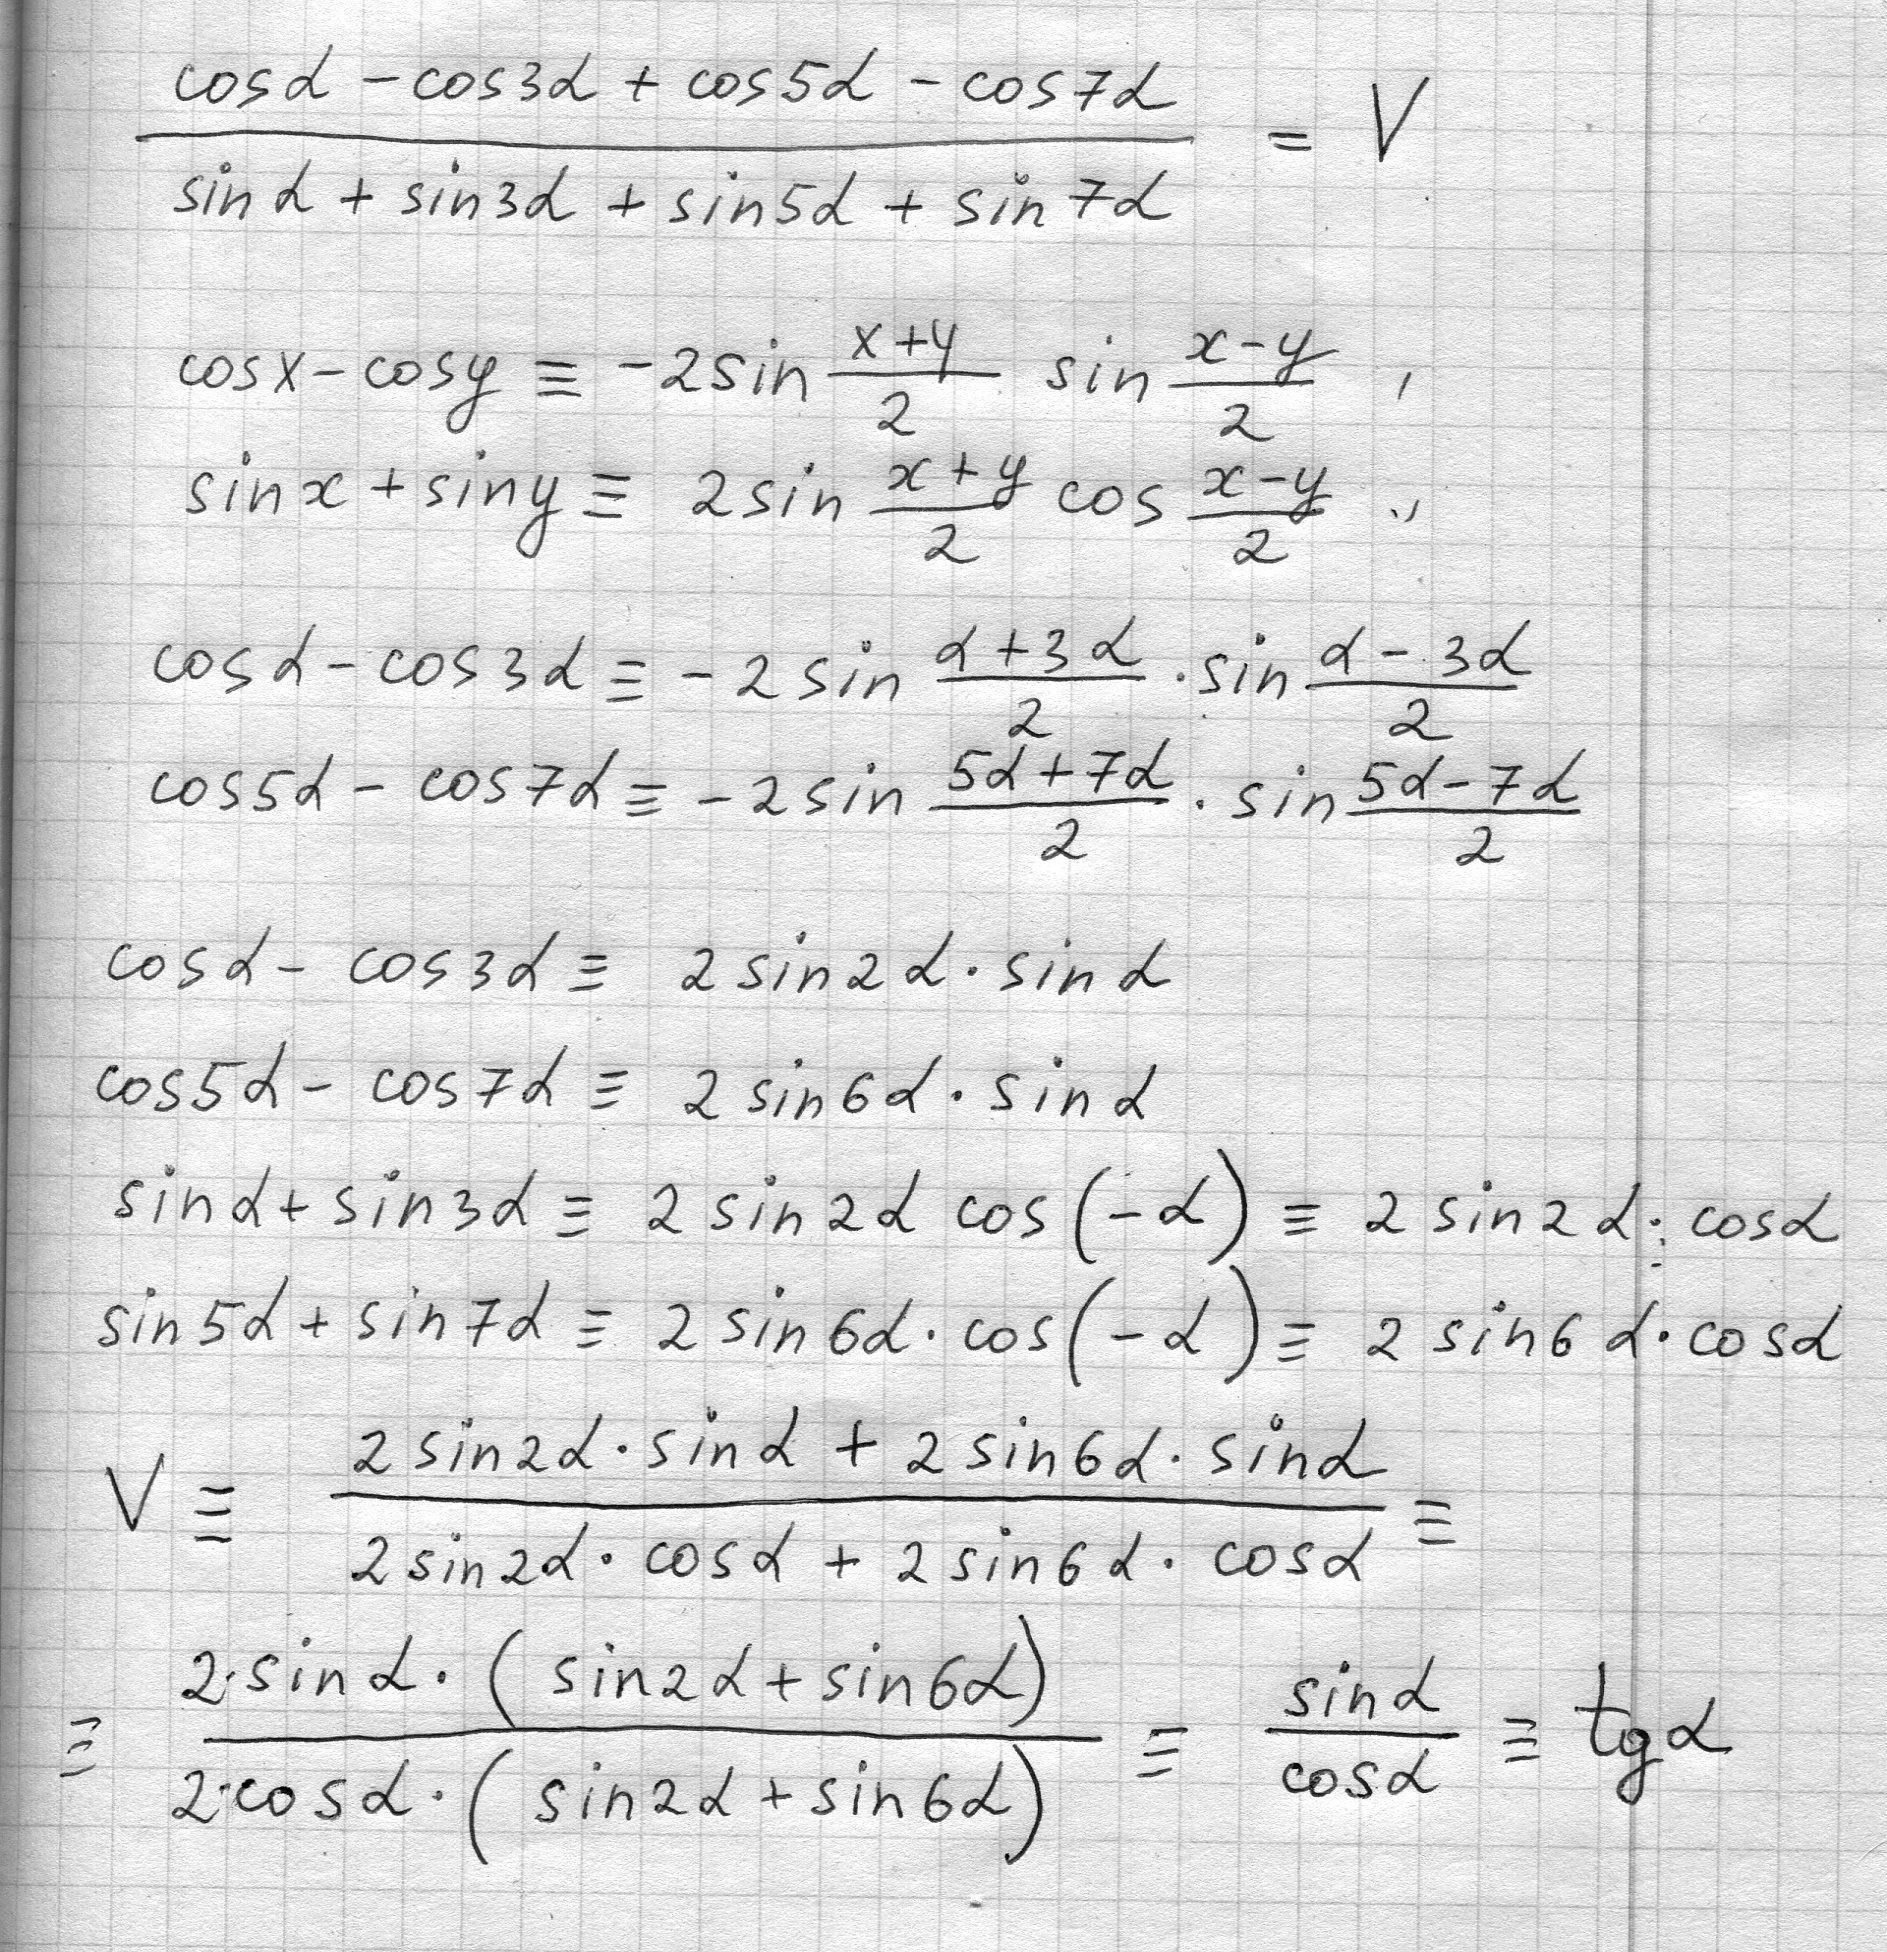 cosα - cos3α + cos5α - cos7α
sinα + sin3α + sin5α + sin7α
= V
cosx - cosy ≡ -2sin (x+y)/2 sin (x-y)/2 ,
sinx + siny ≡ 2sin (x+y)/2 cos (x-y)/2 .,
cosα - cos3α ≡ -2sin (α+3α)/2 · sin (α-3α)/2
cos5α - cos7α ≡ -2sin (5α+7α)/2 · sin (5α-7α)/2
cosα - cos3α ≡ 2sin2α · sinα
cos5α - cos7α ≡ 2sin6α · sinα
sinα + sin3α ≡ 2sin2α cos(-α) ≡ 2sin2α · cosα
sin5α + sin7α ≡ 2sin6α · cos(-α) ≡ 2sin6α · cosα
V ≡ (2sin2α · sinα + 2sin6α · sinα)/(2sin2α · cosα + 2sin6α · cosα) ≡
≡ (2·sinα · (sin2α + sin6α))/(2·cosα · (sin2α + sin6α)) ≡ sinα/cosα ≡ tgα